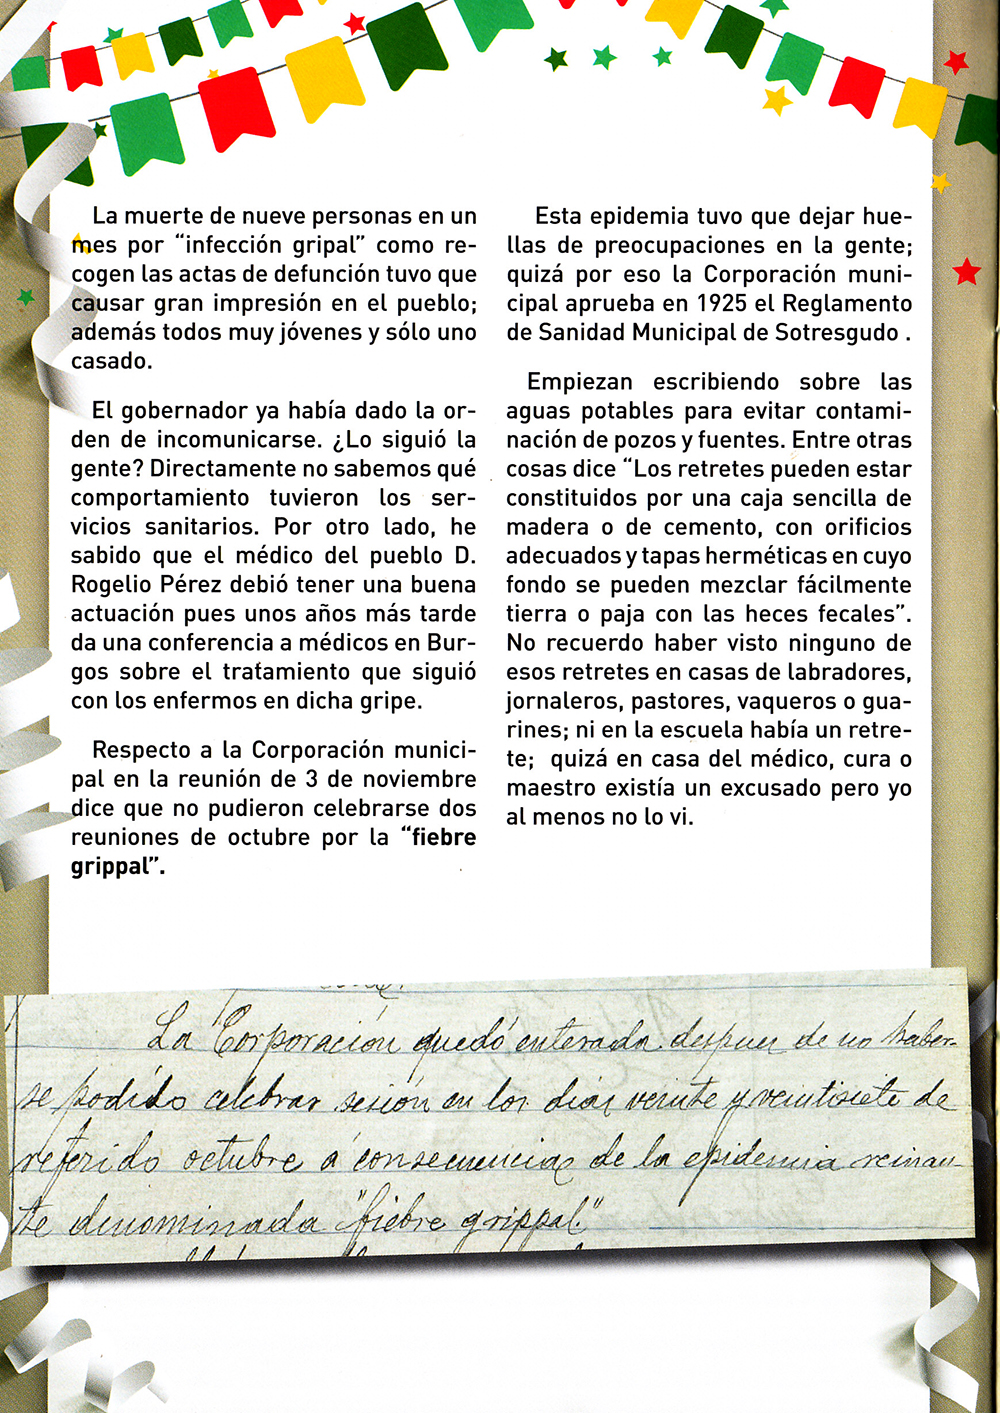 La muerte de nueve personas en un
mes por “infección gripal” como re-
cogen las actas de defunción tuvo que
causar gran impresión en el pueblo;
además todos muy jóvenes y sólo uno
casado.
El gobernador ya había dado la or-
den de incomunicarse. ¿Lo siguió la
gente? Directamente no sabemos qué
comportamiento tuvieron los ser-
vicios sanitarios. Por otro lado, he
sabido que el médico del pueblo D.
Rogelio Pérez debió tener una buena
actuación pues unos años más tarde
da una conferencia a médicos en Bur-
gos sobre el tratamiento que siguió
con los enfermos en dicha gripe.
Respecto a la Corporación munici-
pal en la reunión de 3 de noviembre
dice que no pudieron celebrarse dos
reuniones de octubre por la “fiebre
grippal”.
Esta epidemia tuvo que dejar hue-
llas de preocupaciones en la gente;
quizá por eso la Corporación muni-
cipal aprueba en 1925 el Reglamento
de Sanidad Municipal de Sotresgudo .
Empiezan escribiendo sobre las
aguas potables para evitar contami-
nación de pozos y fuentes. Entre otras
cosas dice “Los retretes pueden estar
constituidos por una caja sencilla de
madera o de cemento, con orificios
adecuados y tapas herméticas en cuyo
fondo se pueden mezclar fácilmente
tierra o paja con las heces fecales”.
No recuerdo haber visto ninguno de
esos retretes en casas de labradores,
jornaleros, pastores, vaqueros o gua-
rines; ni en la escuela había un retre-
te; quizá en casa del médico, cura o
maestro existía un excusado pero yo
al menos no lo vi.
La Corporación quedó enterada despues de no haber-
se podido celebrar sesión en los días veinte y veintisiete de
referido octubre á consecuencia de la epidemia reinan-
te denominada "fiebre grippal."